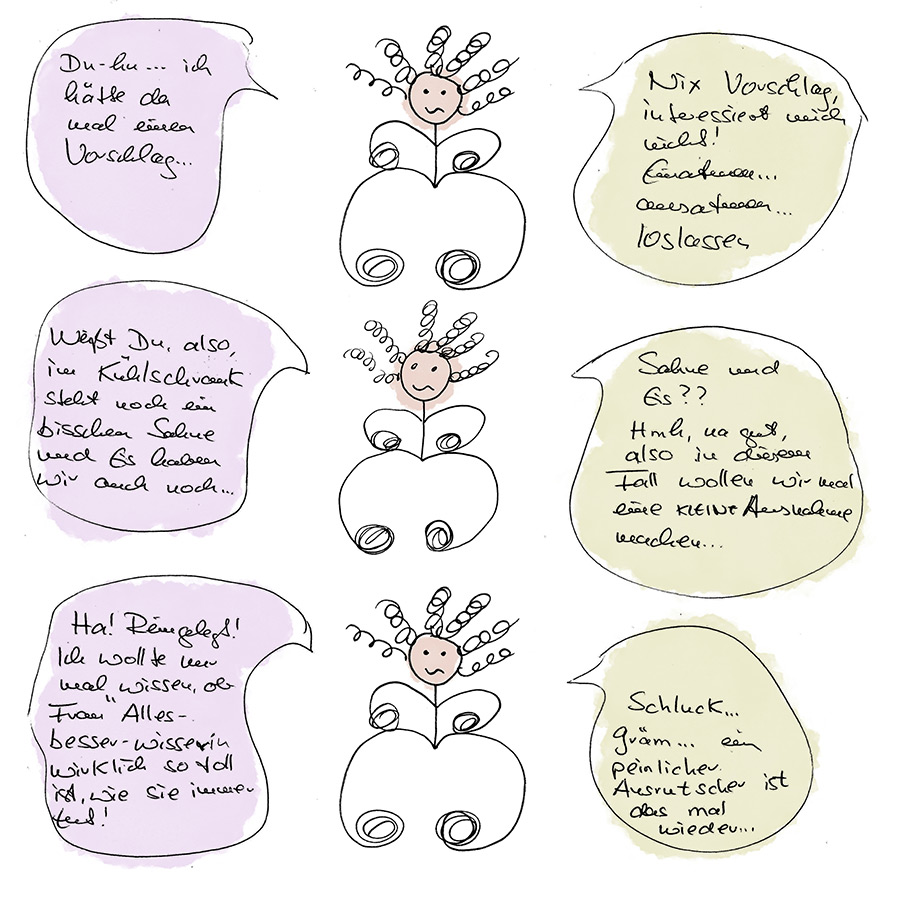 Du-hu... ich
hätte da
mal einen
Vorschlag...
Nix Vorschlag,
interessiert mich
nicht!
Einatmen...
ausatmen...
loslassen
Weißt Du, also,
im Kühlschrank
steht noch ein
bisschen Sahne
und Eis haben
wir auch noch...
Sahne und
Eis??
Hmh, na gut,
also in diesem
Fall wollen wir mal
eine KLEINE Ausnahme
machen...
Ha! Reingelegt!
Ich wollte nur
mal wissen, ob
Frau "Alles-
besser-wisserin
wirklich so toll
ist, wie sie immer
tut!
Schluck...
gräm... ein
peinlicher
Ausrutscher ist
das mal
wieder...